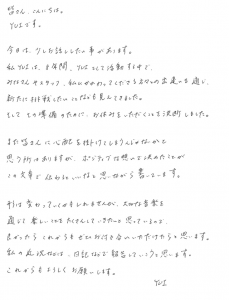 皆さん、こんにちは。
YUIです。
今日は、少しお話ししたい事があります。
私YUIは、8年間、YUIとして活動する中で、
おけるスタッフ、私にかかわってくださる方々との出逢いを通じ、
新たに挑戦したいことなども見えてきました。
そして、その準備のために、お休みをいただくことを決断しました。
また皆さんに心配を掛けてしまうんじゃないかなと
思う所はありますが、ポジティブな想いで決めたことが
この文章で伝わるといいなと思いながら書いています。
形は変わっていくかもしれませんが、大切な音楽を
通じて楽しいことをたくさんしていきたいと思っているので
良かったらこれからもぜひお付き合いいただけたらと思います。
私の近況などは、日誌などで報告していこうと思います。
これからもよろしくお願いします。
YUI